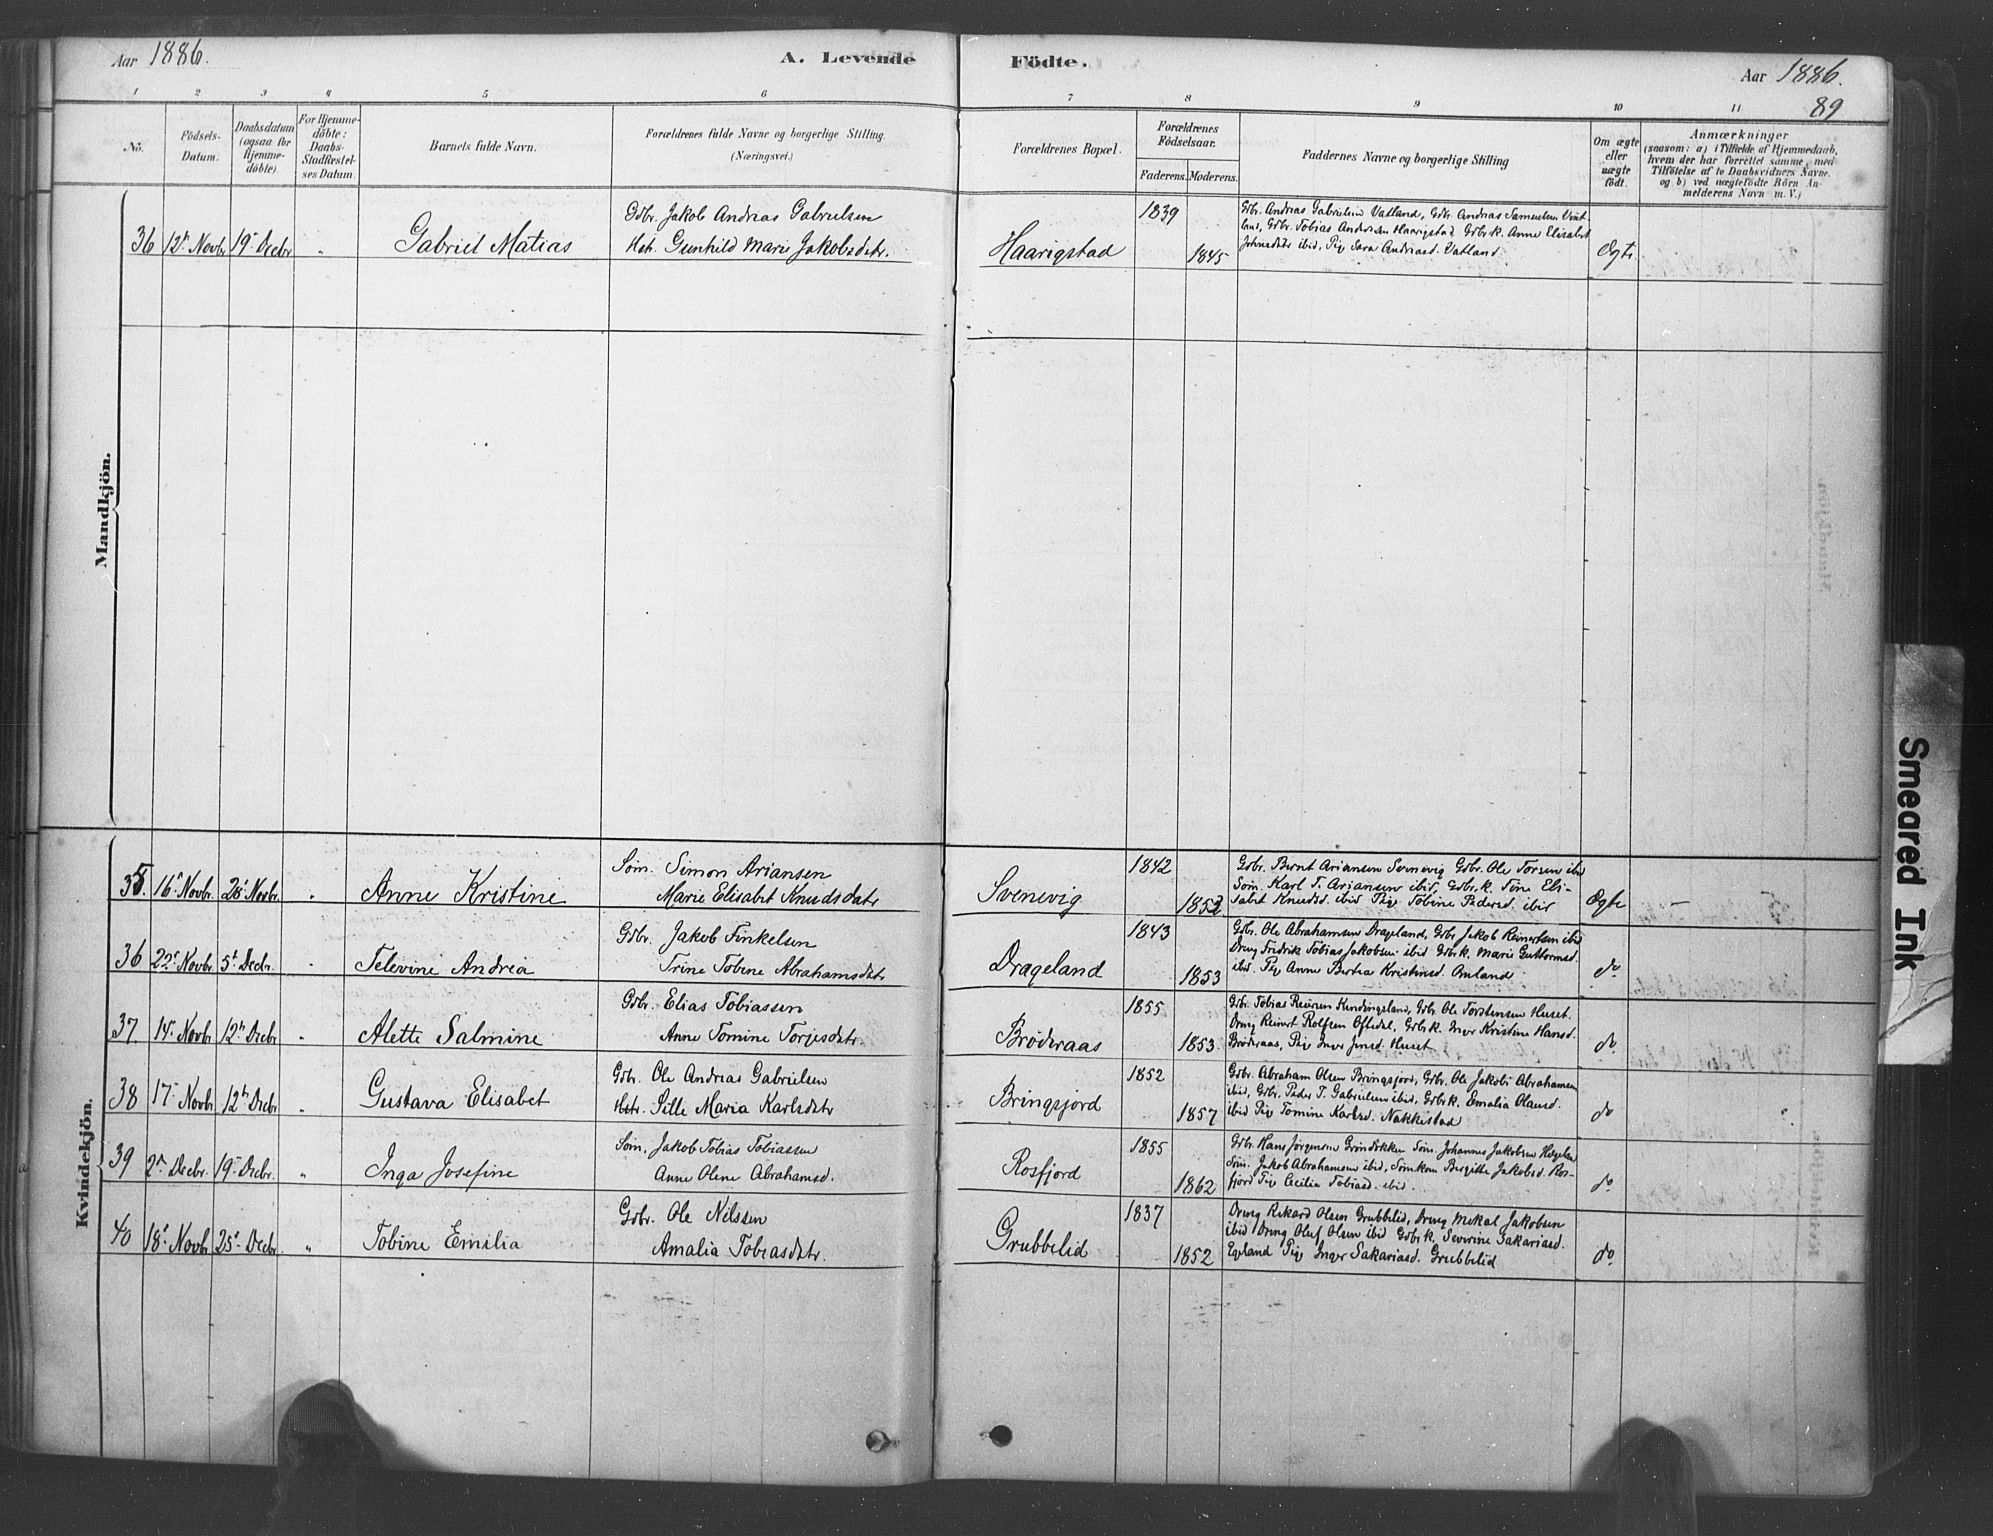 Aar 1886.
A. Levende Födte.
Aar 1886.
89
1 2 3 4 5 6 7 8 9 10 11
Nô.
Födsels-Datum.
Daabsdatum (ogsaa for Hjemme-döbte)
For Hjemme-döbte: Daabs-Stadfæstel-ses Datum.
Barnets fulde Navn.
Forældrenes fulde Navne og borgerlige Stilling. (Næringsvei.)
Forældrenes Bopæl.
Forældrenes Födselsaar.
Faderens. Moderens.
Faddernes Navne og borgerlige Stilling
Om ægte eller uægte födt.
Anmærkninger
(saasom: a) i Tilfælde af Hjemmedaab,
hvem der har forrettet samme, med
Tilföielse af to Daabsvidners Navne.
og b) ved uægtefödte Börn An-
melderens Navn m.V.)
Mandkjön.
36 12t Novbr 19 Decbr " Gabriel Matias
Gdbr. Jakob Andreas Gabrielsen
Hst. Gunhild Marie Jakobsdtr.
Haarigstad
1839
1845
Gdbr. Andreas Gabrielsen Vatland, Gdbr. Andreas Samuelsen
Gdbr. Tobias Andersen Haarigstad Gdbr.k. Anne Elisabet
ibid, Pige Sara Andreasd. Vatland.
Ægte
Kvindekjön.
35. 16 Novbr. 28 Novbr. " Anne Kristine
Söm. Simon Ariansen
Marie Elisabet Knudsdatr
Svenevig
1842
1852
Gdbr. Bernt Ariansen Svenevig Gdbr. Ole Torsen ibid
Söm. Karl T. Ariansen ibid, Gdbr.k. Sine Eli-
sabet Knudsd. ibid Pige Tobine Pedersd. ibid
Ægte
—
36 22 Novbr 5t Decbr. " Televine Andrea
Gdbr. Jakob Finkelsen
Trine Tobine Abrahamsdtr
Drageland
1843
1853
Gdbr. Ole Abrahamsen Drageland, Gdbr Jakob Reinertsen ibid
Dreng Fredrik Tobias Jakobsen ibid Gdbr.k. Marie Guttormsd.
ibid. Pige Anne Bertea Kristinsd.
do
37 14 Novbr 12te Decbr " Alette Salmine
Gdbr. Elias Tobiassen
Anne Tomine Torjesdatr.
Bröderaas
1855
1853.
Gdbr. Tobias Reiersen Gdbr. Ole Torstensen Huset.
Dreng Reinert Rolfsen Oftedal, Gdbr.k. Inger Kristine Hansd.
Bröderaas, Pige Inger Jensd. Huset
do
38 17 Novbr 12te Decbr " Gustava Elisabet
Gdbr. Ole Andreas Gabrielsen
Hstr. Sille Maria Karlsdtr
Bringsjord
1852
1857
Gdbr. Abraham Olsen Bringsjord, Gdbr. Ole Jakob Abrahamsen
ibid, Gdbr. Peder T. Gabrielsen ibid, Gdbr.k. Emalia Olausd.
ibid Pige Tomine Karlsd. Nakkestad
do
39 2 Decbr. 19 Decbr. " Inga Josefine
Söm. Jakob Tobias Tobiassen
Anne Olene Abrahamsd.
Rosfjord
1855
1862
Gdbr. Hans Jörgensen Gröndokken Söm. Johannes Jakobsen
Söm. Jakob Abrahamsen ibid, Sömkone Birgitte Jakobsd. Ros-
fjord Pige Cecilia Tobiasd. ibid.
do
40 18 Novbr 25 Decbr. " Tobine Emilia
Gdbr. Ole Nilssen
Amalia Tobiasdtr.
Grubbelid
1837
1852
Dreng Rikard Olsen Grubbelid, Dreng Mekal Jakobsen
ibid Dreng Oluf Olsen ibid Gdbr.k. Severine Sakariasd.
Egeland Pige Inger Sakariasd. Grubbelid
do
Smeared Ink